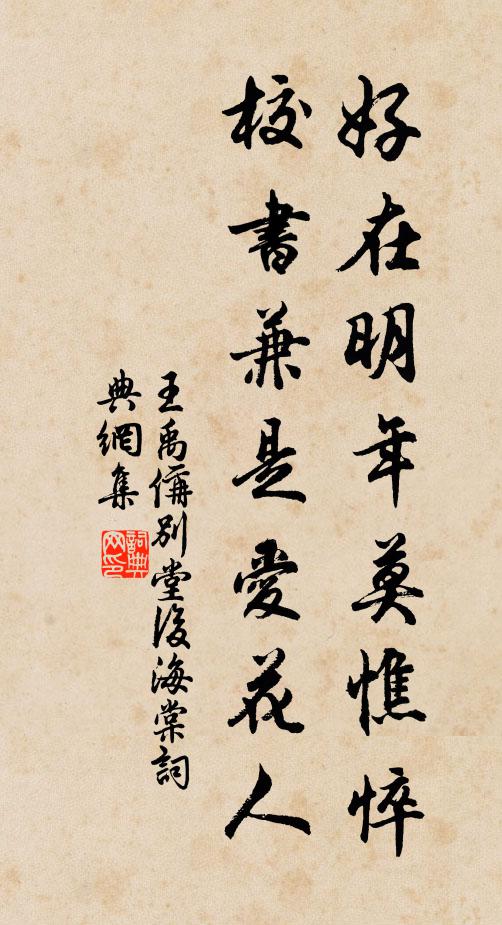 好在明年莫憔悴
校書兼是愛花人
王禹偁別堂後海棠詞
典網集
詞典
网印